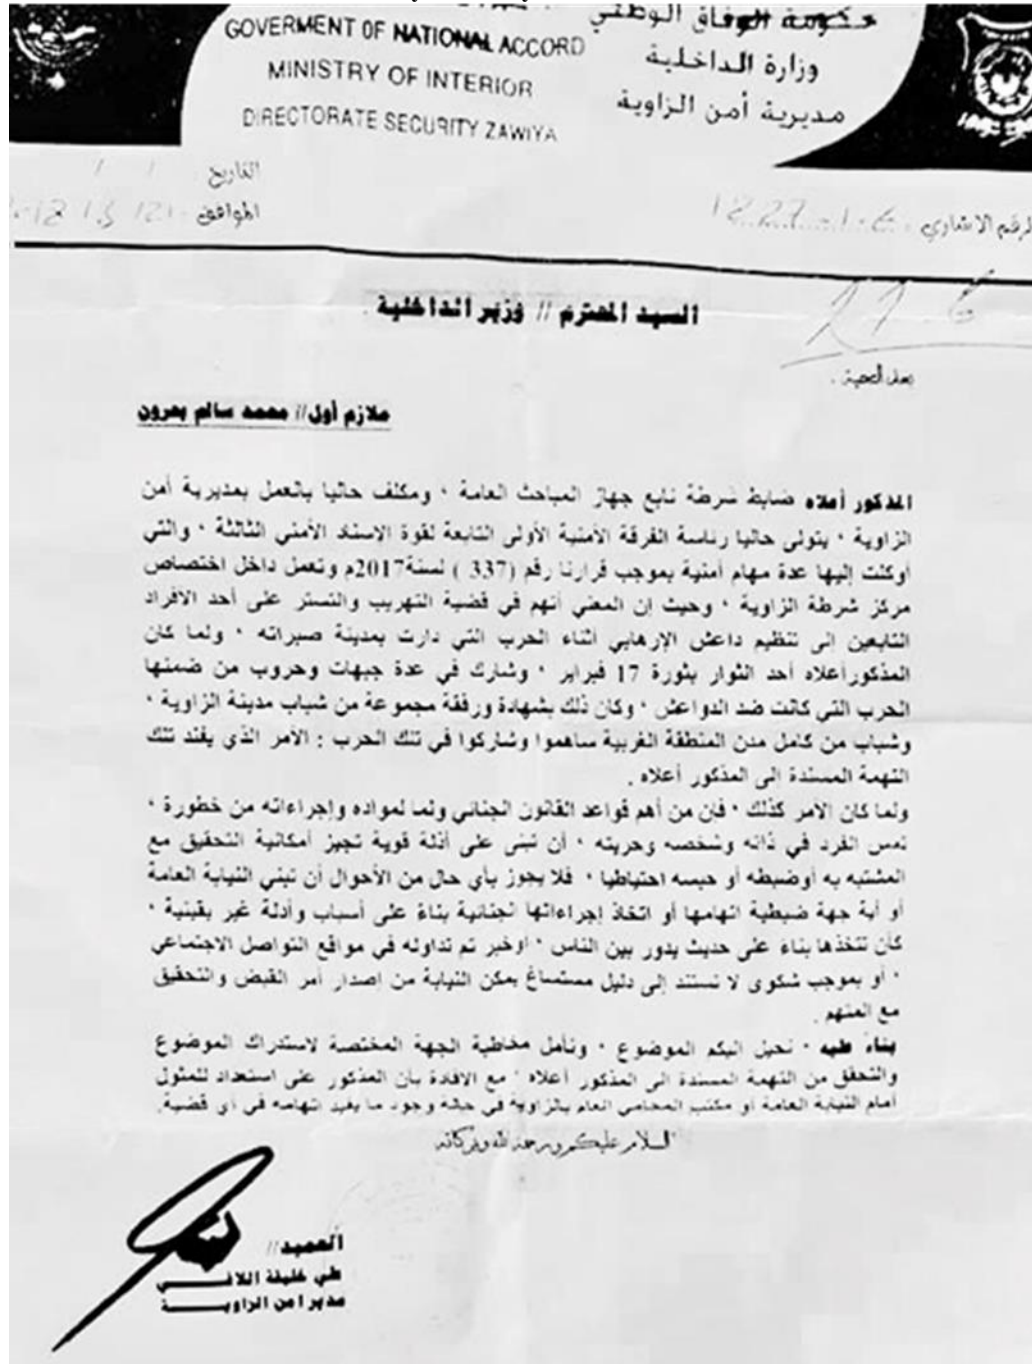 حكومة الوفاق الوطني
GOVERMENT OF NATIONAL ACCORD
وزارة الداخلية
MINISTRY OF INTERIOR
مديرية أمن الزاوية
DIRECTORATE SECURITY ZAWIYA
التاريخ / /
الموافق
الرقم الاشاري
السيد المحترم // وزير الداخلية .
بعد التحية .
ملازم أول // محمد سالم بحرون
المذكور أعلاه ضابط شرطة تابع جهاز المباحث العامة ، ومكلف حاليا بالعمل بمديرية أمن
الزاوية ، يتولى حاليا رئاسة الفرقة الأمنية الأولى التابعة لقوة الاسناد الأمني الثالثة ، والتي
أوكلت إليها عدة مهام أمنية بموجب قرارنا رقم (337 ) لسنة2017م وتعمل داخل اختصاص
مركز شرطة الزاوية ، وحيث إن المعني أتهم في قضية التهريب والتستر على أحد الافراد
التابعين إلى تنظيم داعش الإرهابي أثناء الحرب التي دارت بمدينة صبراته ، ولما كان
المذكورأعلاه أحد الثوار بثورة 17 فبراير ، وشارك في عدة جبهات وحروب من ضمنها
الحرب التي كانت ضد الدواعش ، وكان ذلك بشهادة ورفقة مجموعة من شباب مدينة الزاوية ،
وشباب من كامل مدن المنطقة الغربية ساهموا وشاركوا في تلك الحرب : الأمر الذي يفند تلك
التهمة المسندة الى المذكور أعلاه .
ولما كان الأمر كذلك ، فإن من أهم قواعد القانون الجنائي ولما لمواده وإجراءاته من خطورة ،
تمس الفرد في ذاته وشخصه وحريته ، أن تبنى على أدلة قوية تجيز أمكانية التحقيق مع
المشتبه به أوضبطه أو حبسه احتياطيا ، فلا يجوز بأي حال من الأحوال أن تبني النيابة العامة
أو أية جهة ضبطية اتهامها أو اتخاذ إجراءاتها الجنائية بناءً على أسباب وأدلة غير يقينية ،
كأن تتخذها بناء على حديث يدور بين الناس ، اوخبر تم تداوله في مواقع التواصل الاجتماعي
، أو بموجب شكوى لا تستند إلى دليل مستساغ يمكن النيابة من اصدار أمر القبض والتحقيق
مع المتهم .
بناءً عليه ، نحيل اليكم الموضوع ، ونأمل مخاطبة الجهة المختصة لاستدراك الموضوع
والتحقق من التهمة المسندة الى المذكور أعلاه ، مع الافادة بأن المذكور على استعداد للمثول
أمام النيابة العامة أو مكتب المحامي العام بالزاوية في حالة وجود ما يفيد اتهامه في أي قضية.
السلام عليكم ورحمة الله وبركاته
العميد //
علي خليفة اللافـــي
مدير امن الزاويـــة